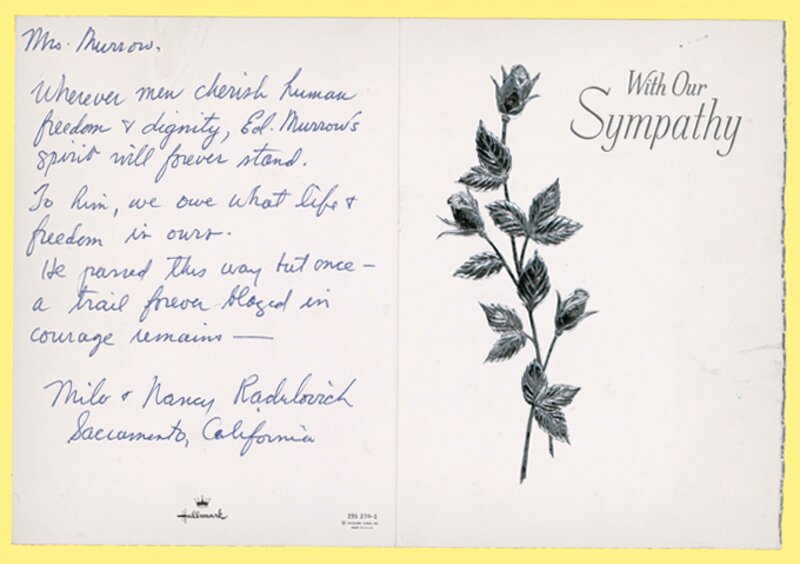 Mrs. Murrow.
Wherever men cherish human
freedom & dignity, Ed. Murrow's
spirit will forever stand.
To him, we owe what life &
freedom is ours.
He passed this way but once –
a trail forever blazed in
courage remains —
Milo & Nancy Radulovich
Sacramento, California
Hallmark
With Our
Sympathy